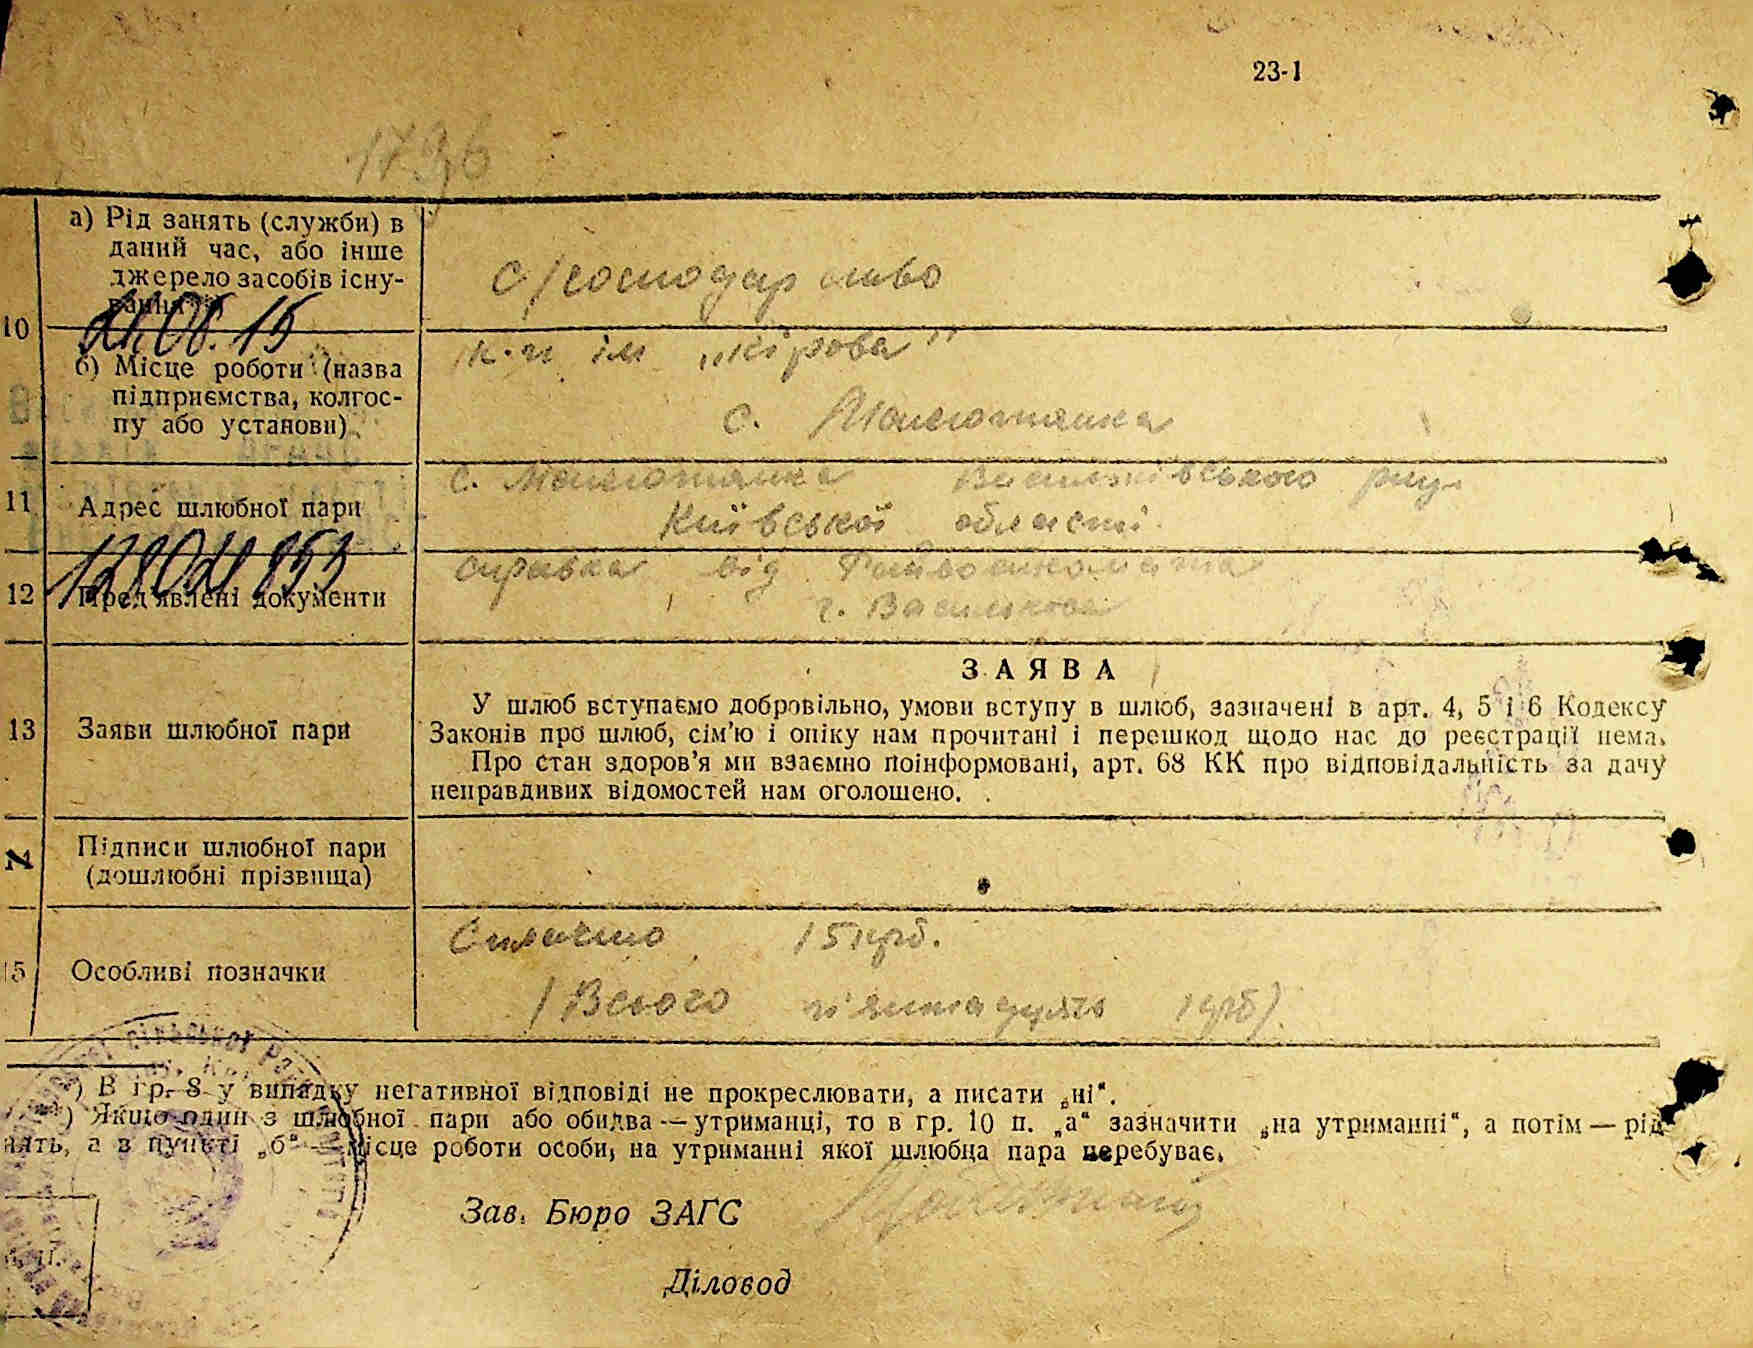 23-1
1796
10
а) Рід занять (служби) в
даний час, або інше
джерело засобів існу-
вання
с/господарство
21.08.15
б) Місце роботи (назва
підприємства, колгос-
пу або установи)
к-п ім „Кірова"
с.
11
Адрес шлюбної пари
с. Васильківського р-ну
Київської області
12
Пред'явлені документи
справка від Райвоенкомата
г. Василькова
13
Заяви шлюбної пари
ЗАЯВА
У шлюб вступаємо добровільно, умови вступу в шлюб, зазначені в арт. 4, 5 і 6 Кодексу
Законів про шлюб, сім'ю і опіку нам прочитані і перешкод щодо нас до реєстрації нема.
Про стан здоров'я ми взаємно поінформовані, арт. 68 КК про відповідальність за дачу
неправдивих відомостей нам оголошено.
Підписи шлюбної пари
(дошлюбні прізвища)
5
Особливі позначки
Сплачено 15 крб.
(Всього п'ятнадцять крб)
*) В гр. 8 у випадку негативної відповіді не прокреслювати, а писати „ні".
**) Якщо один з шлюбної пари або обидва — утриманці, то в гр. 10 п. „а" зазначити „на утриманні", а потім — рід
нять, а в пункті „б" — місце роботи особи, на утриманні якої шлюбна пара перебуває.
Зав. Бюро ЗАГС
Діловод